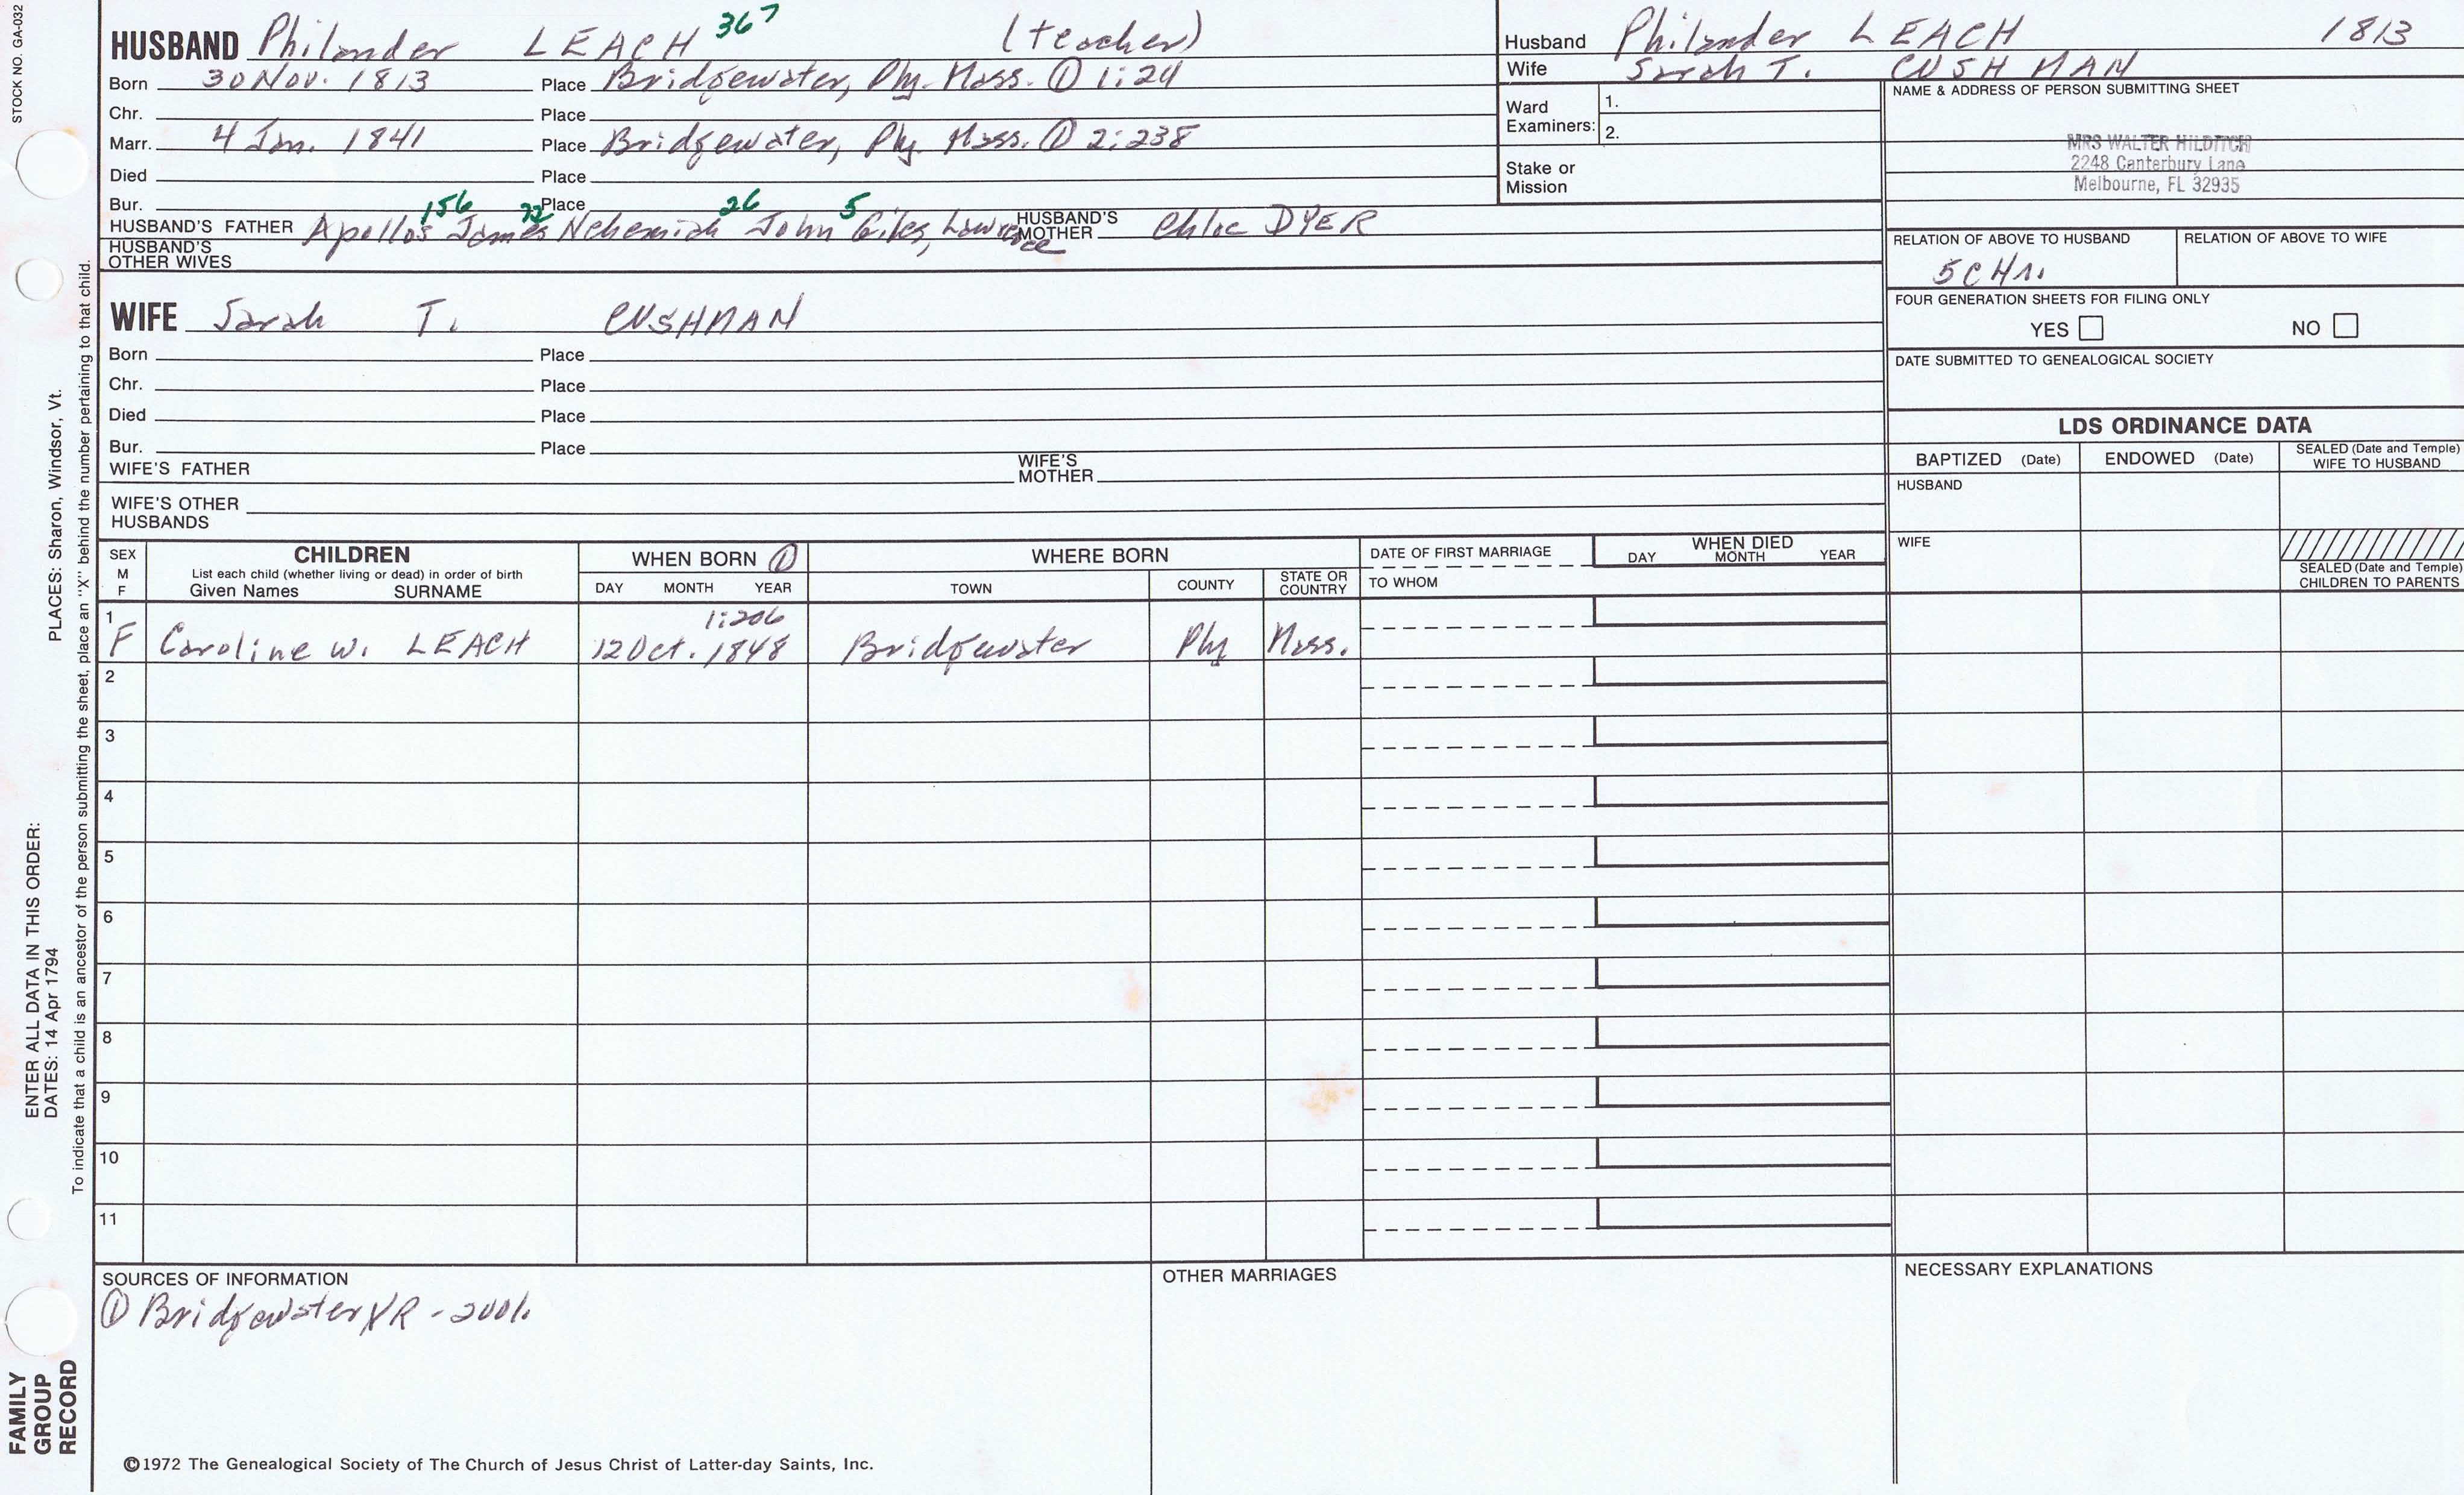 STOCK NO. GA-032
HUSBAND Philander LEACH 367 (teacher)
Born 30 Nov. 1813 Place Bridgewater, Ply. Mass. ① 1:24
Chr. Place
Marr. 4 Jan. 1841 Place Bridgewater, Ply. Mass. ① 2:238
Died Place
Bur. Place
156 72 26 5
HUSBAND'S FATHER Apollos James Nehemiah John Giles, Lawrence HUSBAND'S MOTHER Chloe DYER
HUSBAND'S OTHER WIVES
Husband Philander LEACH 1813
Wife Sarah T. CUSHMAN
Ward Examiners: 1.
2.
Stake or Mission
NAME & ADDRESS OF PERSON SUBMITTING SHEET
MRS WALTER HILDITCH
2248 Canterbury Lane
Melbourne, FL 32935
RELATION OF ABOVE TO HUSBAND RELATION OF ABOVE TO WIFE
FOUR GENERATION SHEETS FOR FILING ONLY
YES NO
DATE SUBMITTED TO GENEALOGICAL SOCIETY
WIFE Sarah T. CUSHMAN
Born Place
Chr. Place
Died Place
Bur. Place
WIFE'S FATHER WIFE'S MOTHER
WIFE'S OTHER HUSBANDS
LDS ORDINANCE DATA
BAPTIZED (Date) ENDOWED (Date) SEALED (Date and Temple) WIFE TO HUSBAND
HUSBAND
WIFE
SEALED (Date and Temple) CHILDREN TO PARENTS
SEX M F
CHILDREN
List each child (whether living or dead) in order of birth
Given Names SURNAME
WHEN BORN ①
DAY MONTH YEAR
WHERE BORN
TOWN COUNTY STATE OR COUNTRY
DATE OF FIRST MARRIAGE
TO WHOM
WHEN DIED
DAY MONTH YEAR
1 1:206
F Caroline W. LEACH 12 Oct. 1848 Bridgewater Ply Mass.
2
3
4
5
6
7
8
9
10
11
SOURCES OF INFORMATION
① Bridgewater VR -
OTHER MARRIAGES
NECESSARY EXPLANATIONS
©1972 The Genealogical Society of The Church of Jesus Christ of Latter-day Saints, Inc.
FAMILY GROUP RECORD
ENTER ALL DATA IN THIS ORDER:
DATES: 14 Apr 1794
PLACES: Sharon, Windsor, Vt.
To indicate that a child is an ancestor of the person submitting the sheet, place an "X" behind the number pertaining to that child.